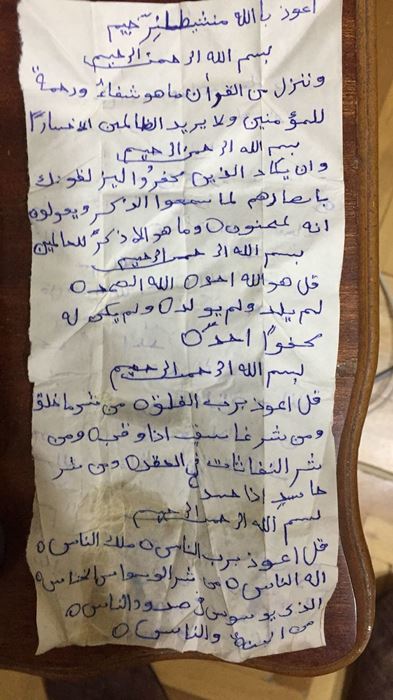 اعوذ بالله منشيطانرجيم
بسم الله الرحمن الرحيم
وننزل من القرأن ما هو شفاءٌ ورحمةٌ
للمؤمنين ولا يريد الظالمين الا خسارًا
بسم الله الرحمن الرحيم
وان يكاد الذين كفرُوا ليز لقونك
بابصارهم لما سمعوا الذكر ويقولون
انه لمجنون ٥ وما هو الا ذكرٌ للعالمين
بسم الله الرحمن الرحيم
قل هو الله احد ٥ الله الصمد ٥
لم يلد ولم يولد ٥ ولم يكن له
كفوًا احدٌ ٥
بسم الله الرحمن الرحيم
قل اعوذ برب الفلق ٥ من شر ما خلق
ومن شر غاسق اذا وقب ٥ ومن
شر النفاثات في العقد ٥ ومن شر
حاسدٍ اذا حسد
بسم الله الرحمن الرحيم
قل اعوذ برب الناس ٥ ملك الناس ٥
اله الناس ٥ من شر الوسواس الخناس ٥
الذي يوسوس في صدور الناس ٥
من الجنة والناس ٥